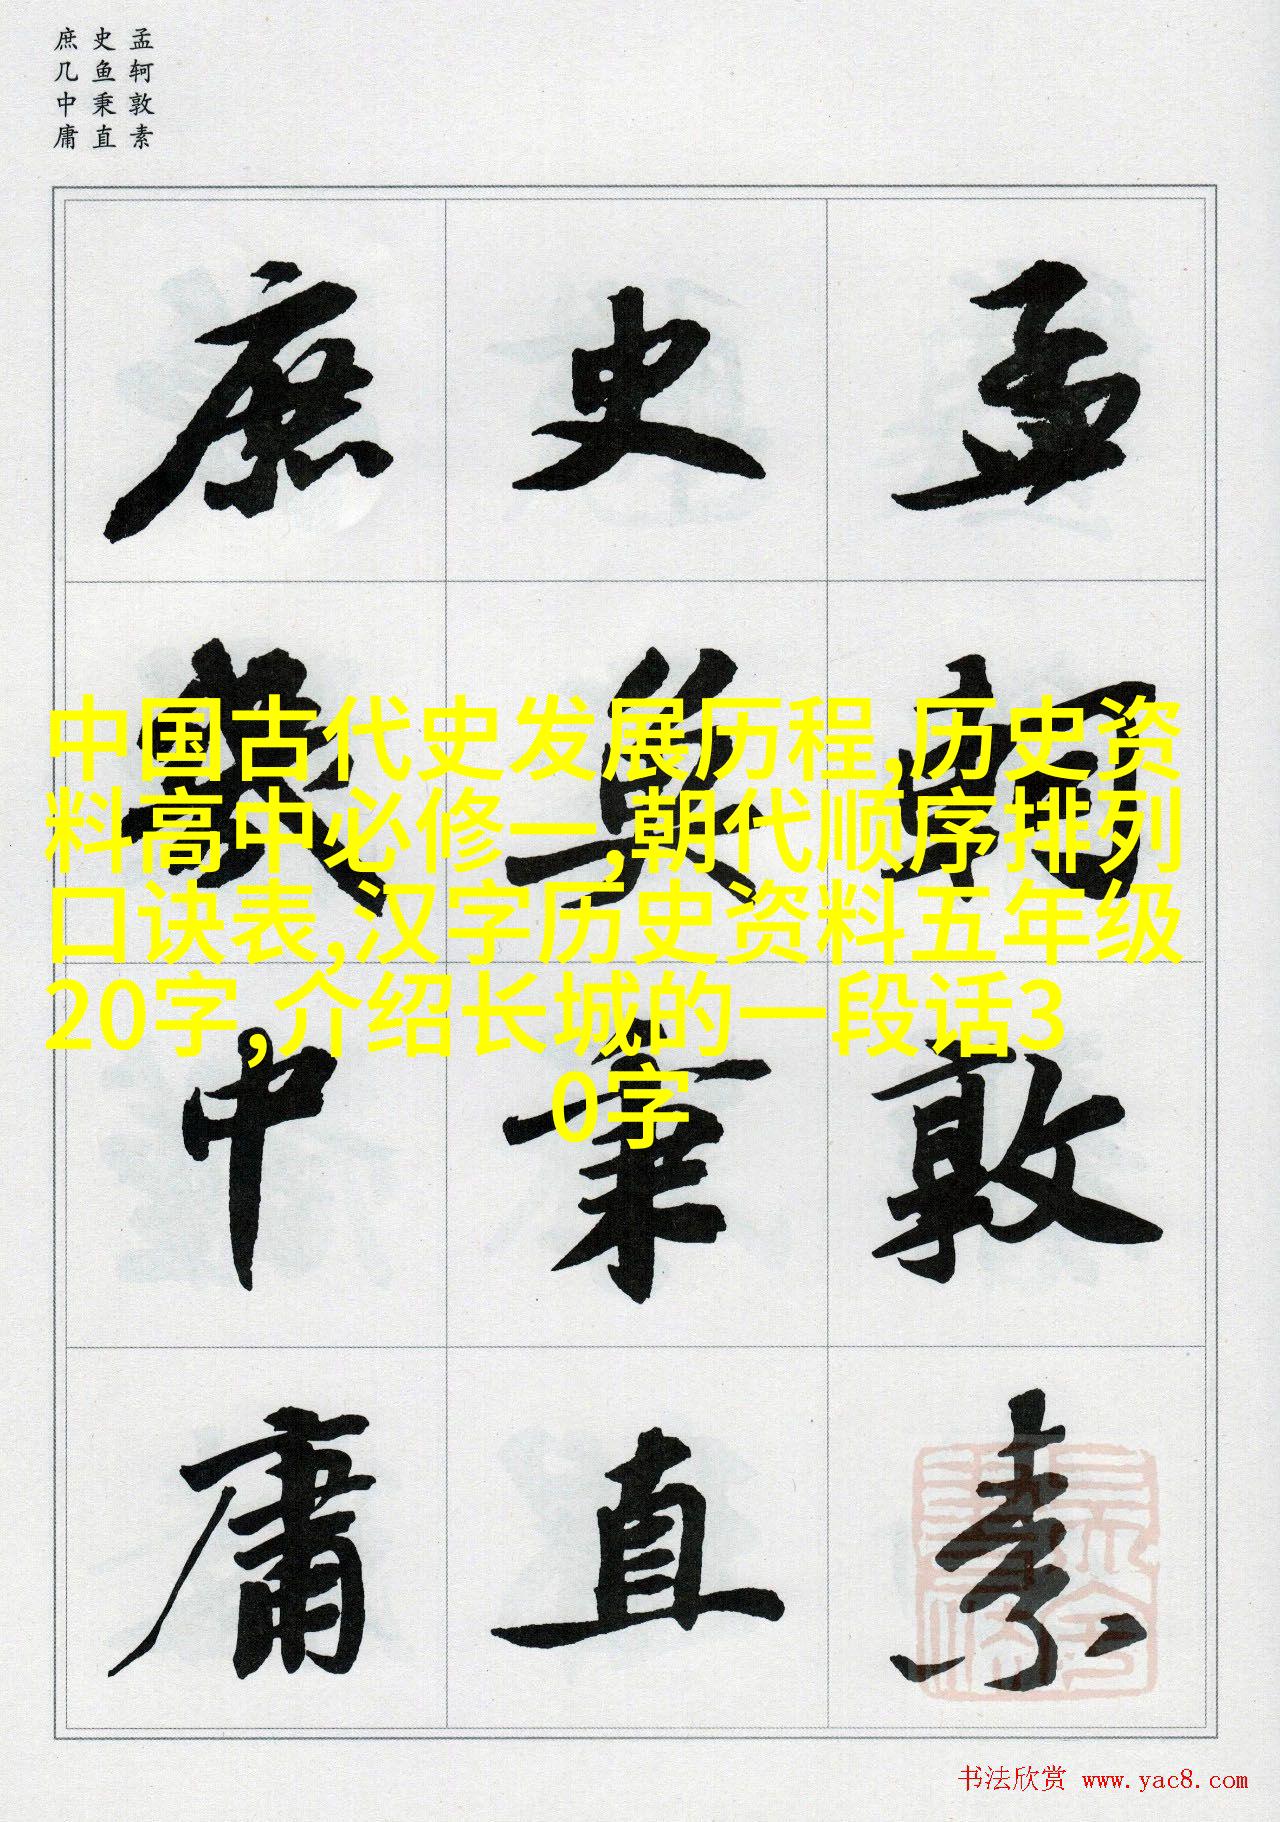 孟轲敦素
史鱼秉直
庶几中庸
孟轲敦素
史鱼秉直
庶几中庸
中国古代史发展历程,历史资
料高中必修一,朝代顺序排列
口诀表,汉字历史资料五年级
20字,介绍长城的一段话3
0字
书法欣赏 www.yac8.com